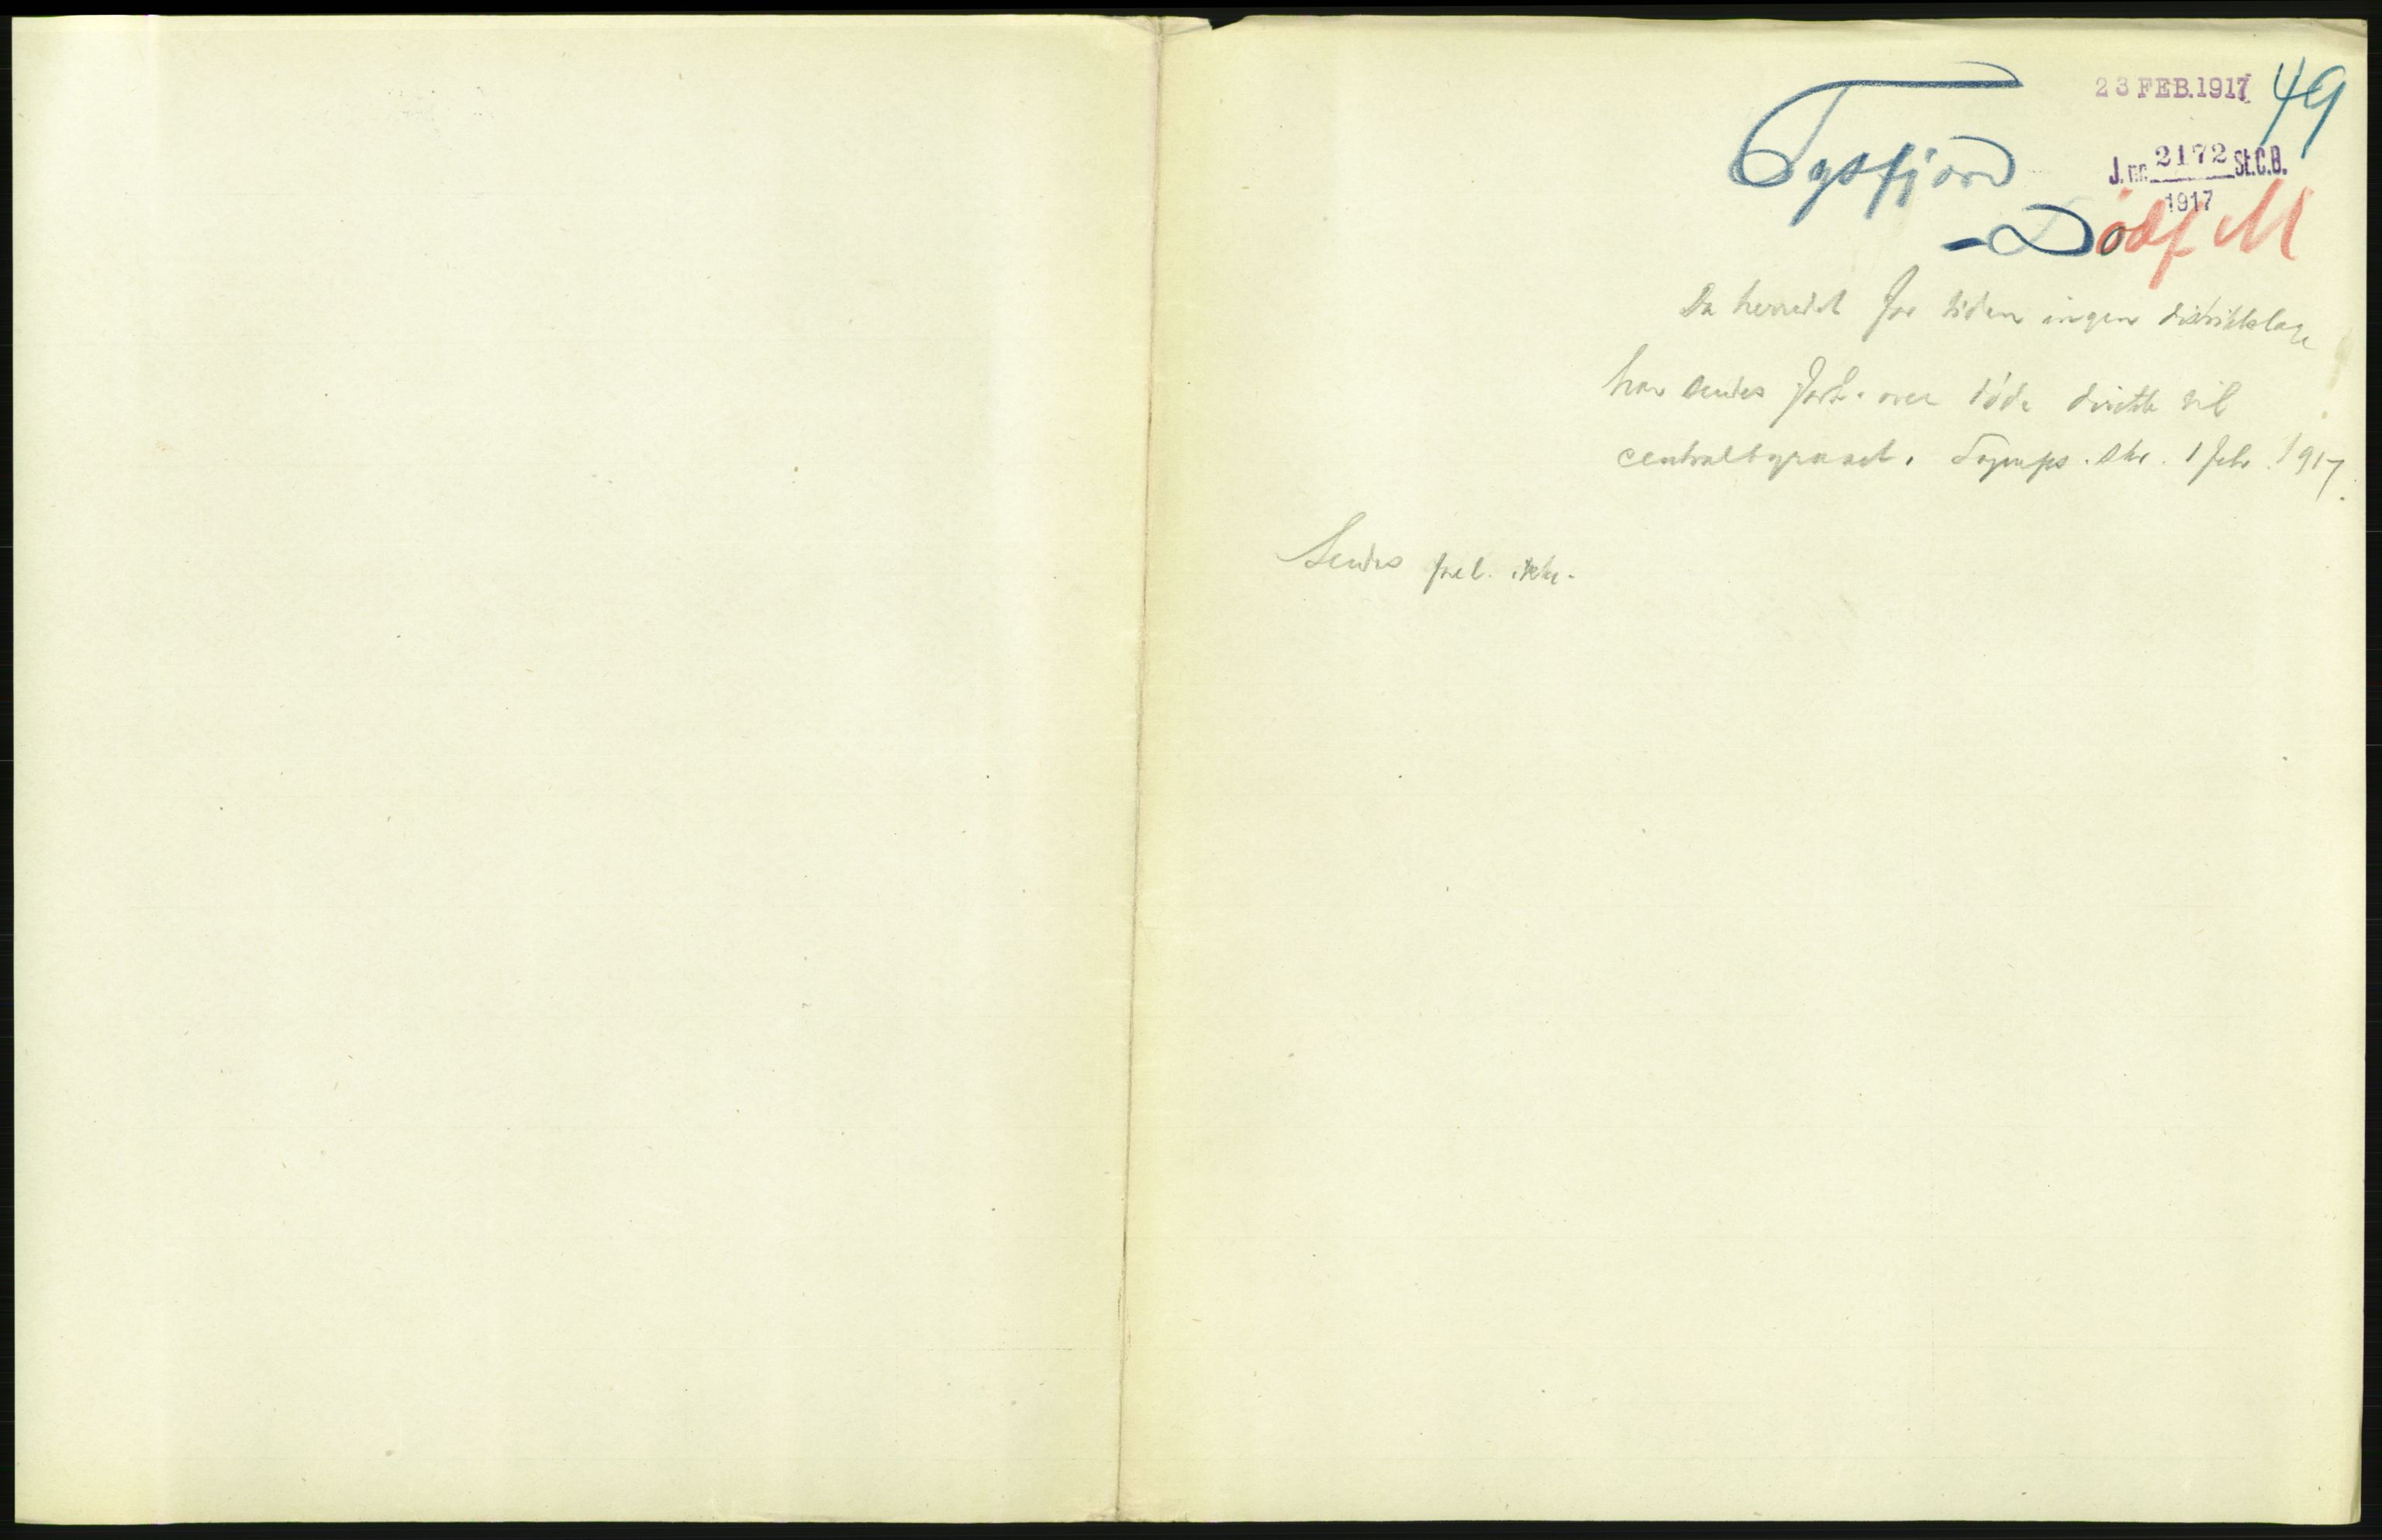 23 FEB.1917 49
Tysfjord
J.nr. 2172 St.C.B.
1917
- Dødf M
Da herredet for tiden ingen distriktslæge
har sendes fort. over døde direkte til
centralbyraaet. 1 febr 1917.
Sendes